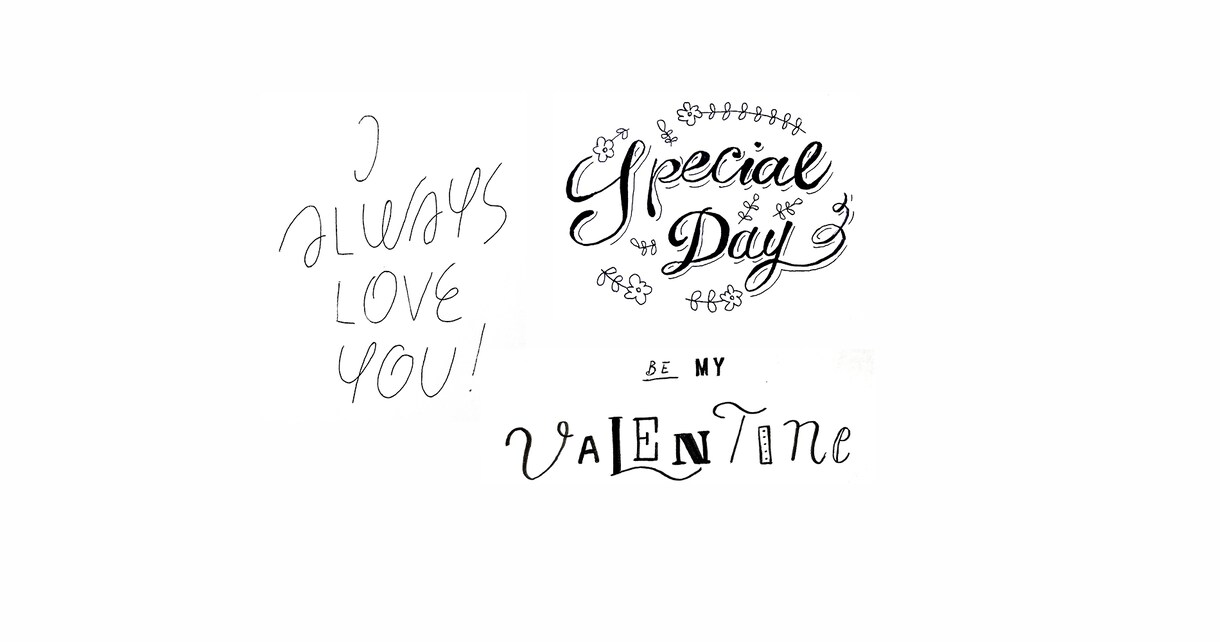 I
ALWAYS
LOVE
YOU!
Special
Day
BE MY
VALENTINe